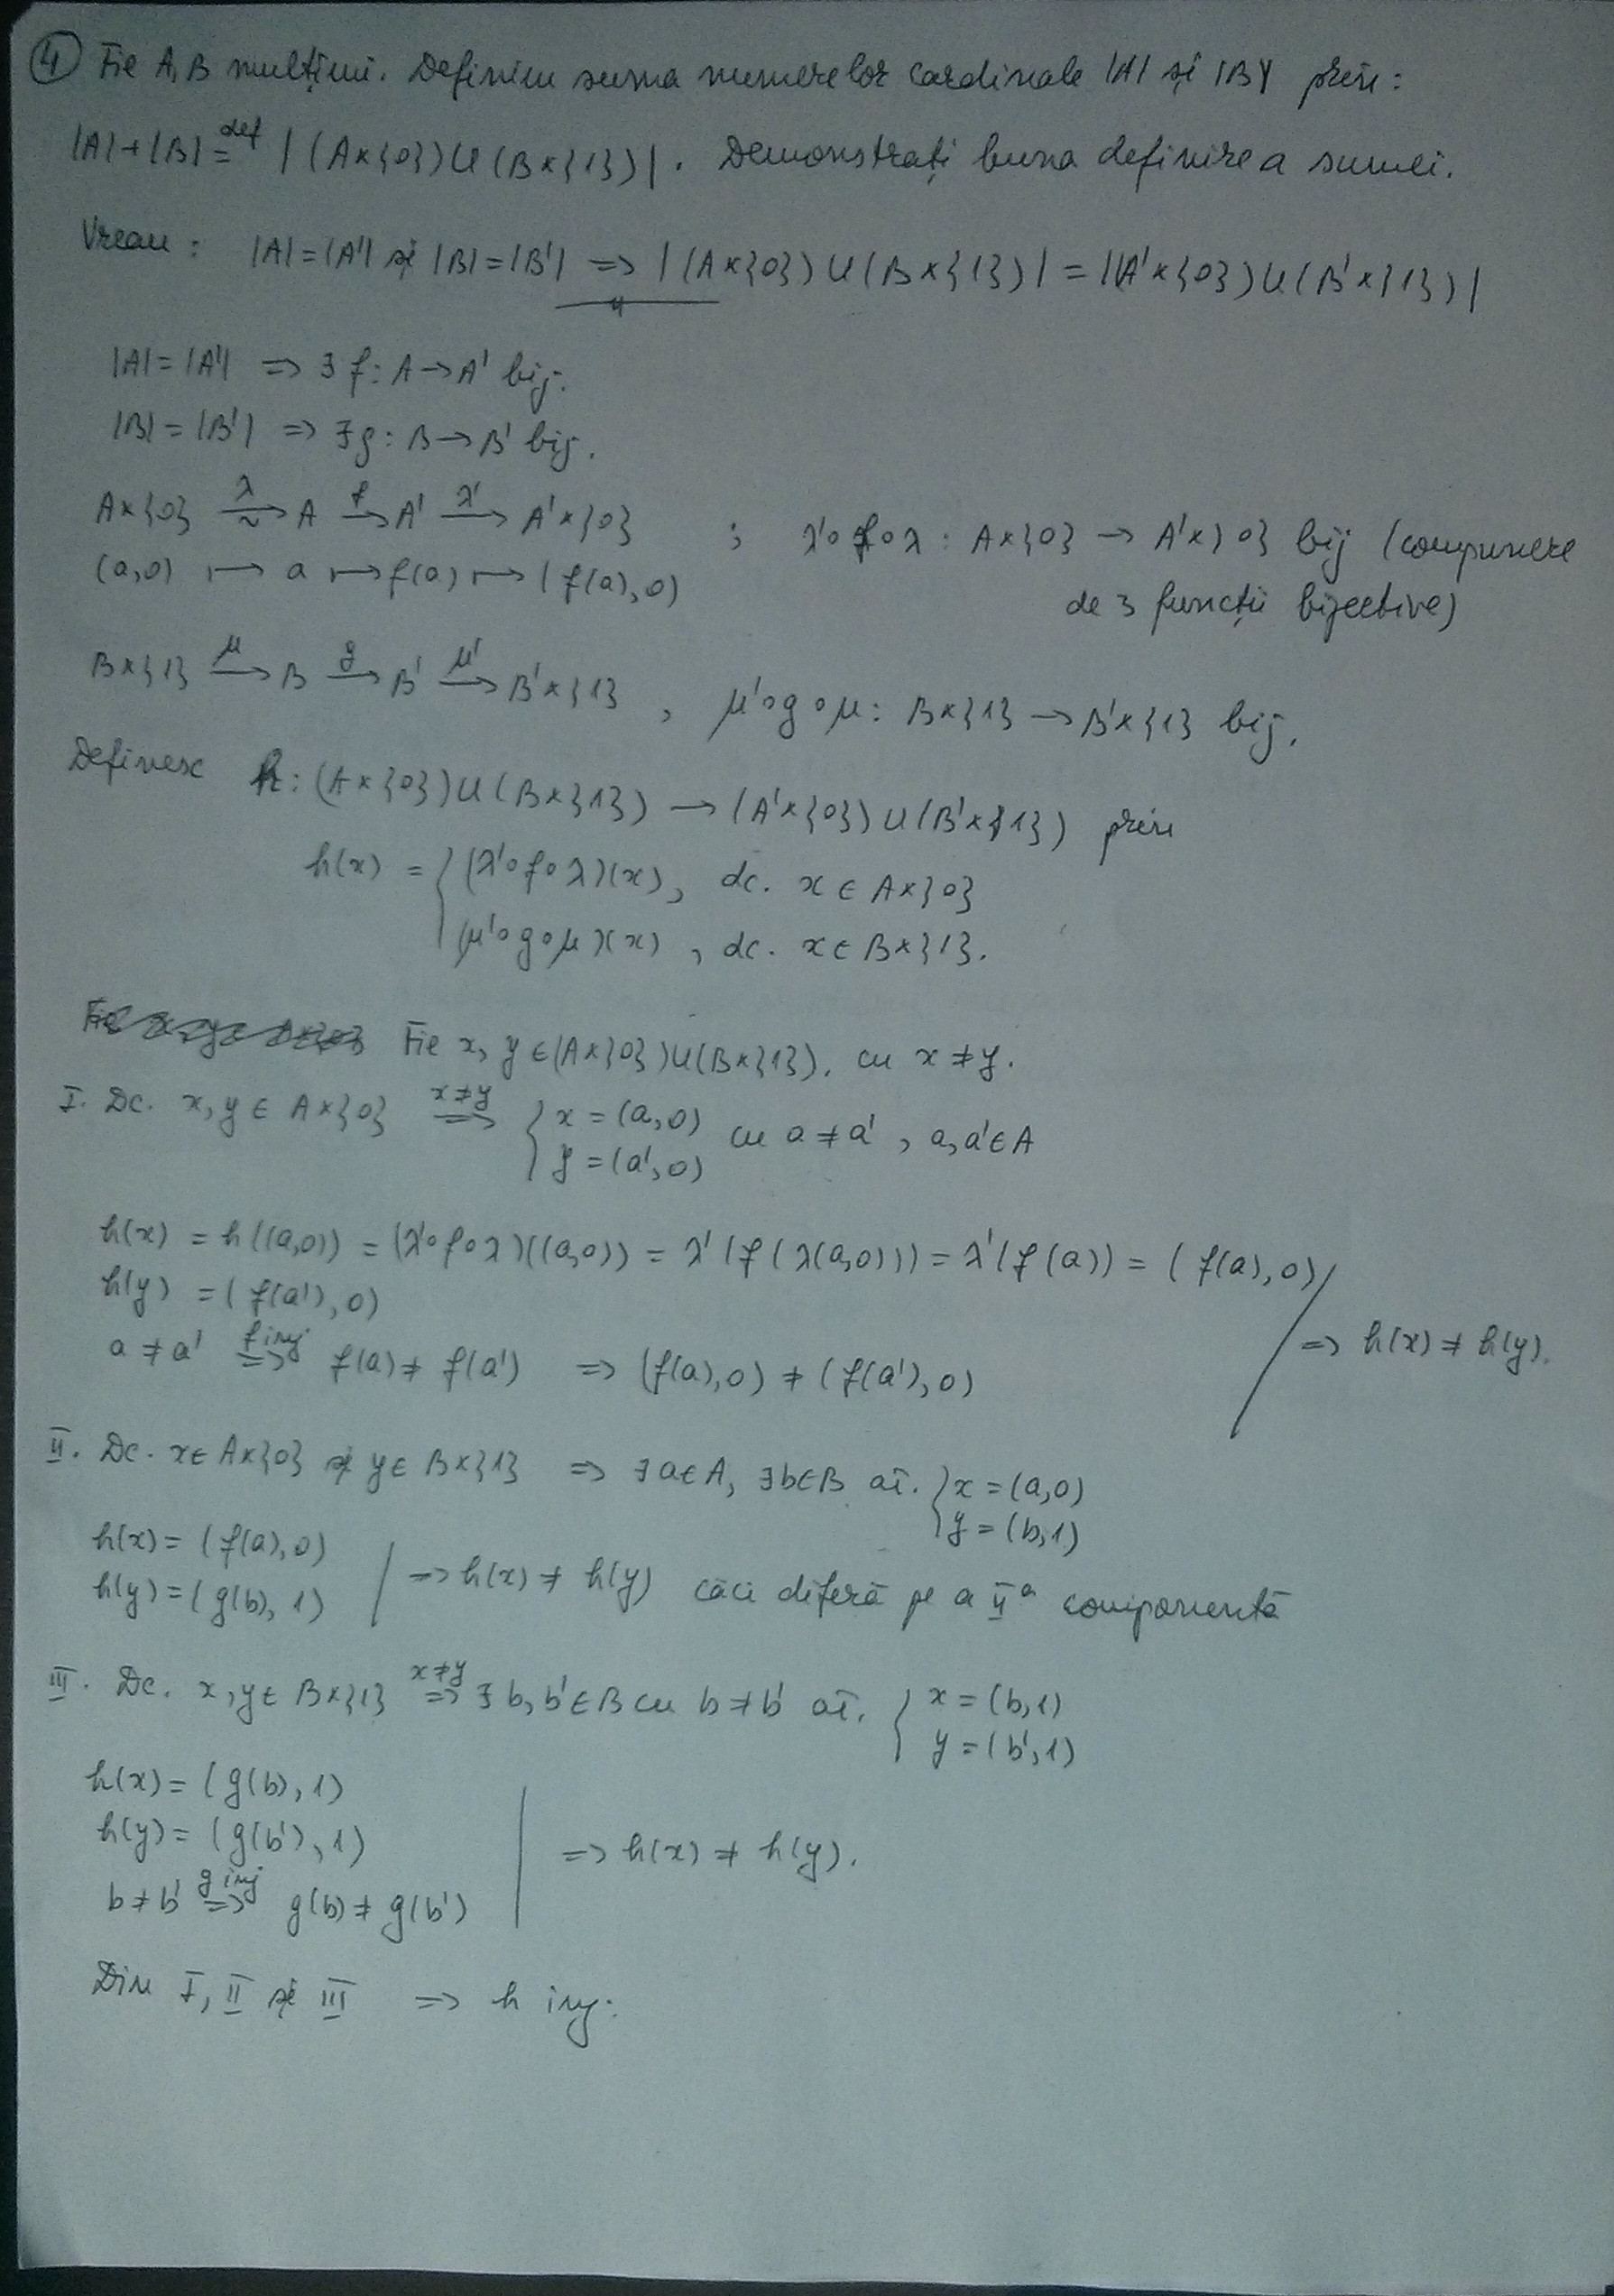 ④ Fie A, B mulțimi. Definim suma numerelor cardinale |A| și |B| prin:
|A|+|B| def= |(A×{0})∪(B×{1})|. Demonstrați buna definire a sumei.
Vreau: |A|=|A'| și |B|=|B'| => |(A×{0})∪(B×{1})| = |(A'×{0})∪(B'×{1})|
|A|=|A'| => ∃ f: A→A' bij.
|B|=|B'| => ∃ g: B→B' bij.
A×{0} λ→~ A f→ A' λ'→ A'×{0} ; λ'∘f∘λ : A×{0} → A'×{0} bij (compunere
(a,0) ↦ a ↦ f(a) ↦ (f(a),0) de 3 funcții bijective)
B×{1} μ→ B g→ B' μ'→ B'×{1} , μ'∘g∘μ: B×{1} → B'×{1} bij.
Definesc h: (A×{0})∪(B×{1}) → (A'×{0})∪(B'×{1}) prin
h(x) = { (λ'∘f∘λ)(x), dc. x ∈ A×{0}
(μ'∘g∘μ)(x), dc. x ∈ B×{1}.
Fie x, y ∈ (A×{0})∪(B×{1}), cu x ≠ y.
I. Dc. x, y ∈ A×{0} x≠y => { x = (a,0)
y = (a',0) cu a ≠ a', a, a' ∈ A
h(x) = h((a,0)) = (λ'∘f∘λ)((a,0)) = λ'(f(λ(a,0))) = λ'(f(a)) = (f(a),0)
h(y) = (f(a'),0)
a ≠ a' f inj => f(a) ≠ f(a') => (f(a),0) ≠ (f(a'),0) => h(x) ≠ h(y).
II. Dc. x∈A×{0} și y∈B×{1} => ∃ a∈A, ∃ b∈B aî. { x = (a,0)
y = (b,1)
h(x) = (f(a),0)
h(y) = (g(b),1) => h(x) ≠ h(y) căci diferă pe a IIa componentă
III. Dc. x, y ∈ B×{1} x≠y => ∃ b, b' ∈ B cu b ≠ b' aî. { x = (b,1)
y = (b',1)
h(x) = (g(b),1)
h(y) = (g(b'),1) => h(x) ≠ h(y).
b ≠ b' g inj => g(b) ≠ g(b')
Din I, II și III => h inj.